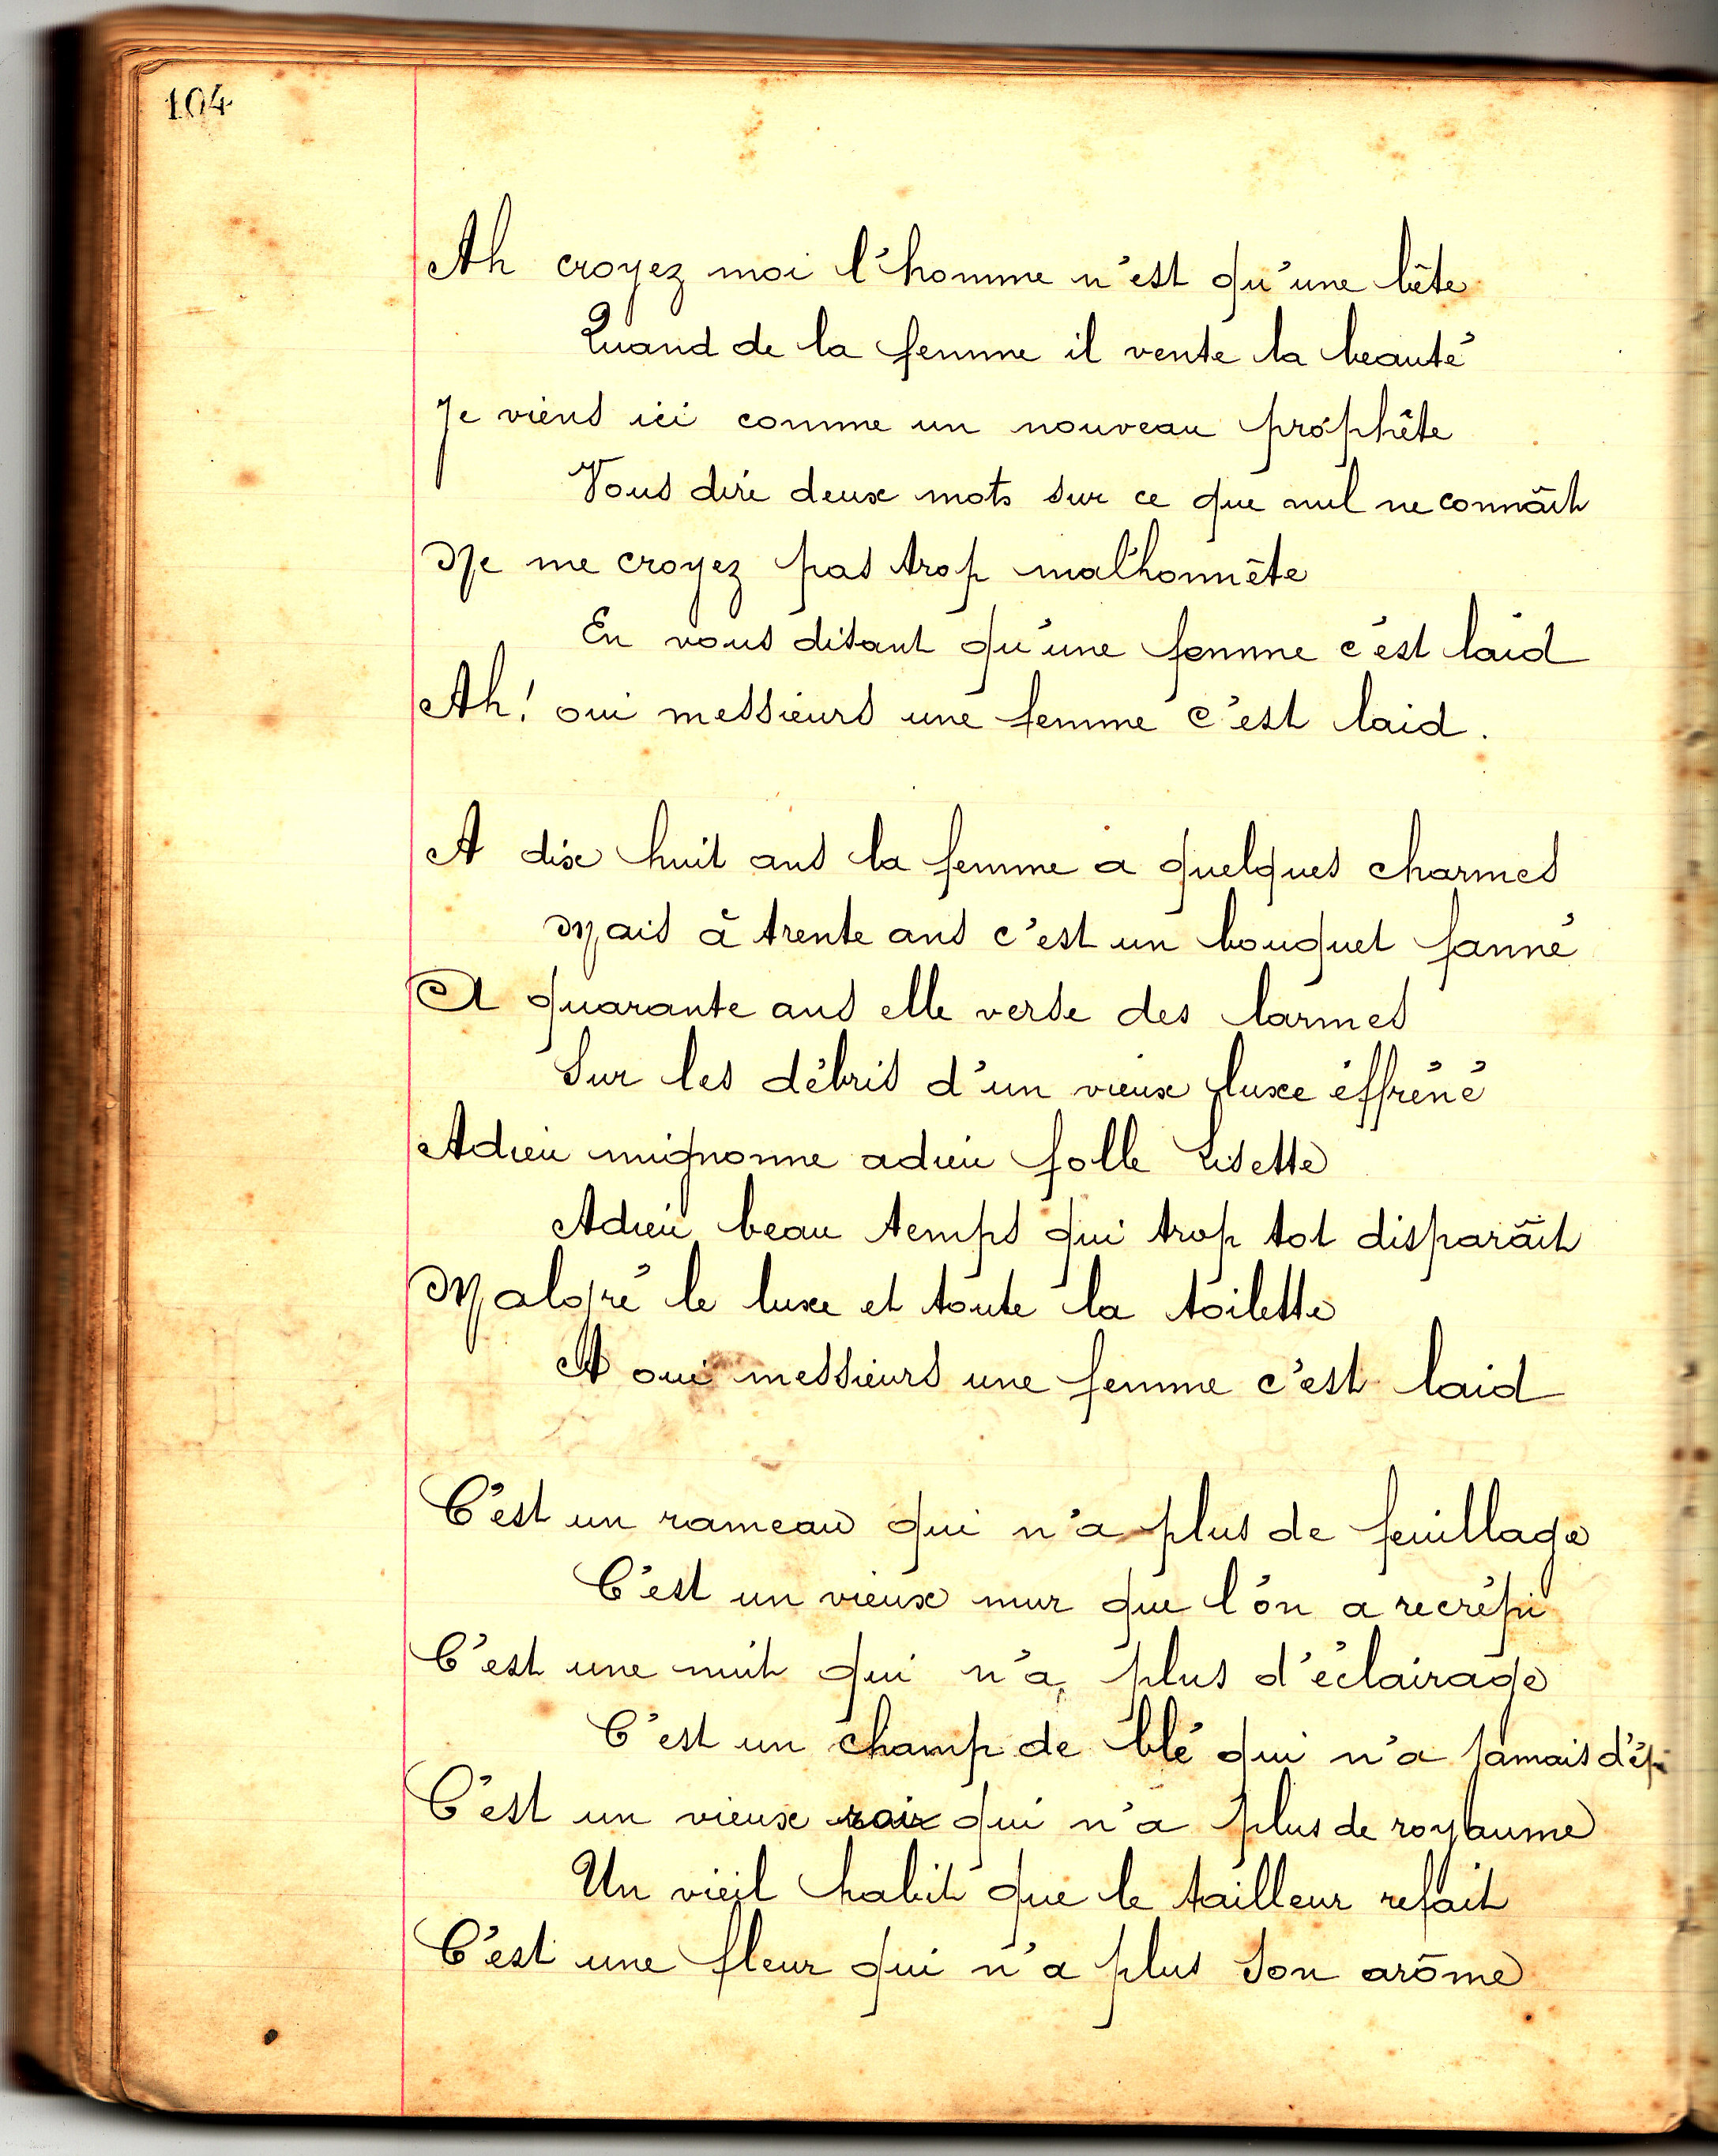 104
Ah croyez moi l'homme n'est qu'une bête
Quand de la femme il vente la beauté
Je viens ici comme un nouveau prophête
Vous dire deux mots sur ce que nul ne connaît
Ne me croyez pas trop malhonnête
En vous disant qu'une femme c'est laid
Ah! oui messieurs une femme c'est laid.
A dix huit ans la femme a quelques charmes
Mais à trente ans c'est un bouquet fanné
A quarante ans elle verse des larmes
Sur les débris d'un vieux luxe éffréné
Adieu mignonne adieu folle Lisette
Adieu beau temps qui trop tot disparaît
Malgré le luxe et toute la toilette
A oui messieurs une femme c'est laid
C'est un rameau qui n'a plus de feuillage
C'est un vieux mur que l'on a recrépi
C'est une nuit qui n'a plus d'éclairage
C'est un champ de blé qui n'a jamais d'épi
C'est un vieux roi qui n'a plus de royaume
Un vieil habit que le tailleur refait
C'est une fleur qui n'a plus son arôme